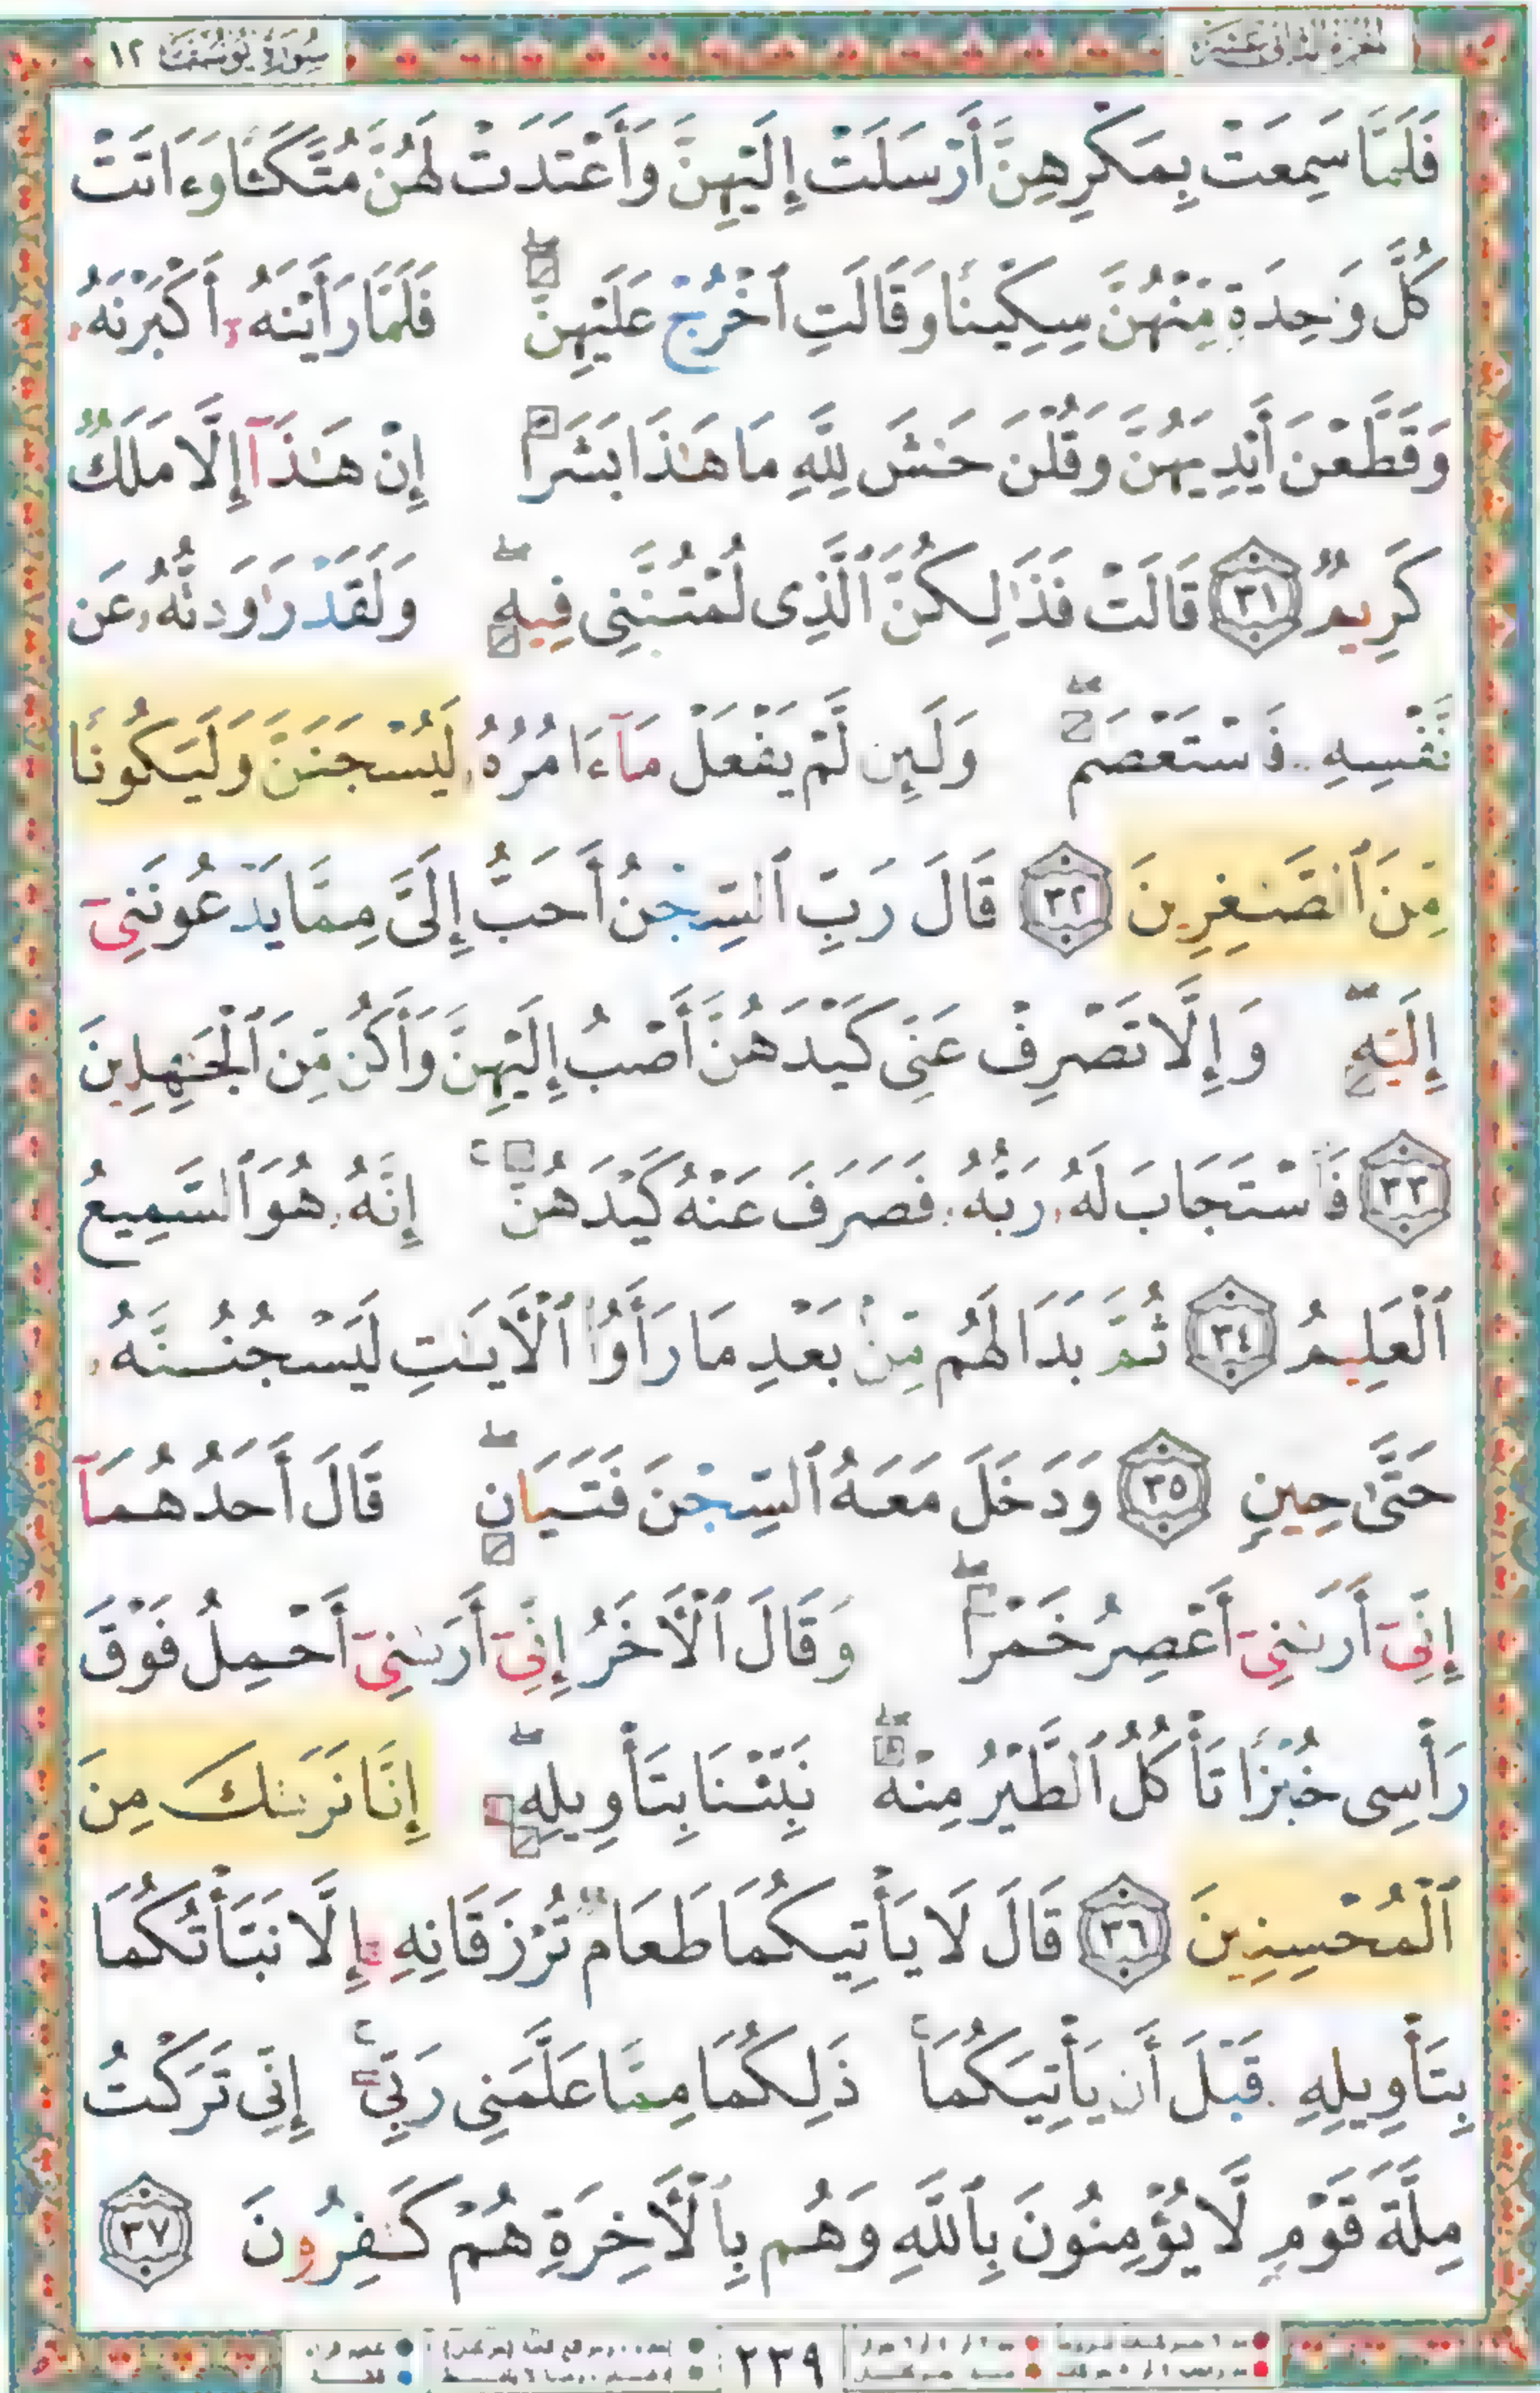 سُورَةُ يُوسُفَ ١٢
الجزء الثاني عشر
فَلَمَّا سَمِعَتْ بِمَكْرِهِنَّ أَرْسَلَتْ إِلَيْهِنَّ وَأَعْتَدَتْ لَهُنَّ مُتَّكَـًٔا وَءَاتَتْ
كُلَّ وَٰحِدَةٍ مِّنْهُنَّ سِكِّينًا وَقَالَتِ ٱخْرُجْ عَلَيْهِنَّ ۖ فَلَمَّا رَأَيْنَهُۥٓ أَكْبَرْنَهُۥ
وَقَطَّعْنَ أَيْدِيَهُنَّ وَقُلْنَ حَـٰشَ لِلَّهِ مَا هَـٰذَا بَشَرًا إِنْ هَـٰذَآ إِلَّا مَلَكٌ
كَرِيمٌ ٣١ قَالَتْ فَذَٰلِكُنَّ ٱلَّذِى لُمْتُنَّنِى فِيهِ ۖ وَلَقَدْ رَٰوَدتُّهُۥ عَن
نَّفْسِهِۦ فَٱسْتَعْصَمَ ۖ وَلَئِن لَّمْ يَفْعَلْ مَآ ءَامُرُهُۥ لَيُسْجَنَنَّ وَلَيَكُونًا
مِّنَ ٱلصَّـٰغِرِينَ ٣٢ قَالَ رَبِّ ٱلسِّجْنُ أَحَبُّ إِلَىَّ مِمَّا يَدْعُونَنِىٓ
إِلَيْهِ ۖ وَإِلَّا تَصْرِفْ عَنِّى كَيْدَهُنَّ أَصْبُ إِلَيْهِنَّ وَأَكُن مِّنَ ٱلْجَـٰهِلِينَ
٣٣ فَٱسْتَجَابَ لَهُۥ رَبُّهُۥ فَصَرَفَ عَنْهُ كَيْدَهُنَّ ۚ إِنَّهُۥ هُوَ ٱلسَّمِيعُ
ٱلْعَلِيمُ ٣٤ ثُمَّ بَدَا لَهُم مِّنۢ بَعْدِ مَا رَأَوُا۟ ٱلْـَٔايَـٰتِ لَيَسْجُنُنَّهُۥ
حَتَّىٰ حِينٍ ٣٥ وَدَخَلَ مَعَهُ ٱلسِّجْنَ فَتَيَانِ ۖ قَالَ أَحَدُهُمَآ
إِنِّىٓ أَرَىٰنِىٓ أَعْصِرُ خَمْرًا ۖ وَقَالَ ٱلْـَٔاخَرُ إِنِّىٓ أَرَىٰنِىٓ أَحْمِلُ فَوْقَ
رَأْسِى خُبْزًا تَأْكُلُ ٱلطَّيْرُ مِنْهُ ۖ نَبِّئْنَا بِتَأْوِيلِهِۦٓ ۖ إِنَّا نَرَىٰكَ مِنَ
ٱلْمُحْسِنِينَ ٣٦ قَالَ لَا يَأْتِيكُمَا طَعَامٌ تُرْزَقَانِهِۦٓ إِلَّا نَبَّأْتُكُمَا
بِتَأْوِيلِهِۦ قَبْلَ أَن يَأْتِيَكُمَا ۚ ذَٰلِكُمَا مِمَّا عَلَّمَنِى رَبِّىٓ ۚ إِنِّى تَرَكْتُ
مِلَّةَ قَوْمٍ لَّا يُؤْمِنُونَ بِٱللَّهِ وَهُم بِٱلْـَٔاخِرَةِ هُمْ كَـٰفِرُونَ ٣٧
٢٣٩